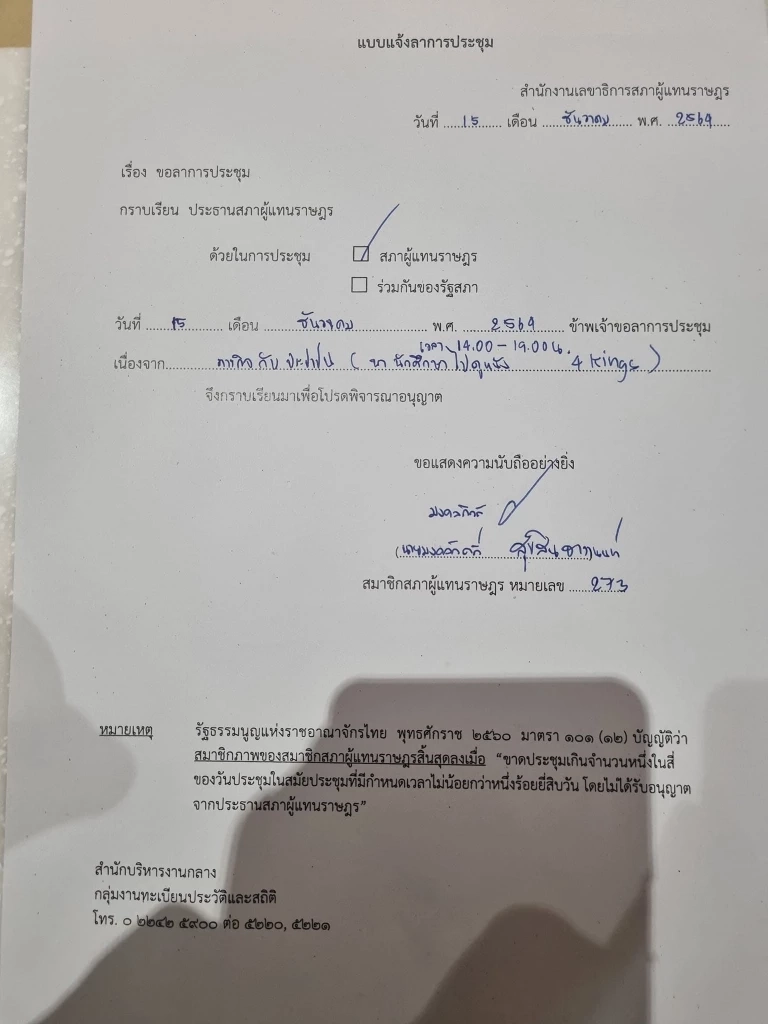 แบบแจ้งลาการประชุม
สำนักงานเลขาธิการสภาผู้แทนราษฎร
วันที่ 15 เดือน ธันวาคม พ.ศ. 2564
เรื่อง ขอลาการประชุม
กราบเรียน ประธานสภาผู้แทนราษฎร
ด้วยในการประชุม ☑ สภาผู้แทนราษฎร
☐ ร่วมกันของรัฐสภา
วันที่ 15 เดือน ธันวาคม พ.ศ. 2564 ข้าพเจ้าขอลาการประชุม
เวลา 14.00 - 19.00 น.
เนื่องจาก ภารกิจ กับ ประชาชน ( พา นักศึกษา ไปดูหนัง 4 kings )
จึงกราบเรียนมาเพื่อโปรดพิจารณาอนุญาต
ขอแสดงความนับถืออย่างยิ่ง
มงคลกิตติ์
(นายมงคลกิตติ์ สุขสินธารานนท์
สมาชิกสภาผู้แทนราษฎร หมายเลข 273
หมายเหตุ รัฐธรรมนูญแห่งราชอาณาจักรไทย พุทธศักราช ๒๕๖๐ มาตรา ๑๐๑ (๑๒) บัญญัติว่า
สมาชิกภาพของสมาชิกสภาผู้แทนราษฎรสิ้นสุดลงเมื่อ "ขาดประชุมเกินจำนวนหนึ่งในสี่
ของวันประชุมในสมัยประชุมที่มีกำหนดเวลาไม่น้อยกว่าหนึ่งร้อยยี่สิบวัน โดยไม่ได้รับอนุญาต
จากประธานสภาผู้แทนราษฎร"
สำนักบริหารงานกลาง
กลุ่มงานทะเบียนประวัติและสถิติ
โทร. ๐ ๒๒๔๒ ๕๙๐๐ ต่อ ๕๒๒๐, ๕๒๒๑